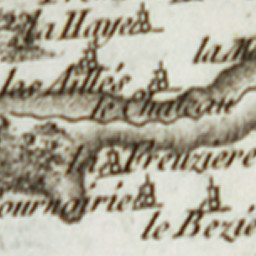 la Haye
la M
las Aillés
le Chateau
la Freuziere
ournairie
le Bezie